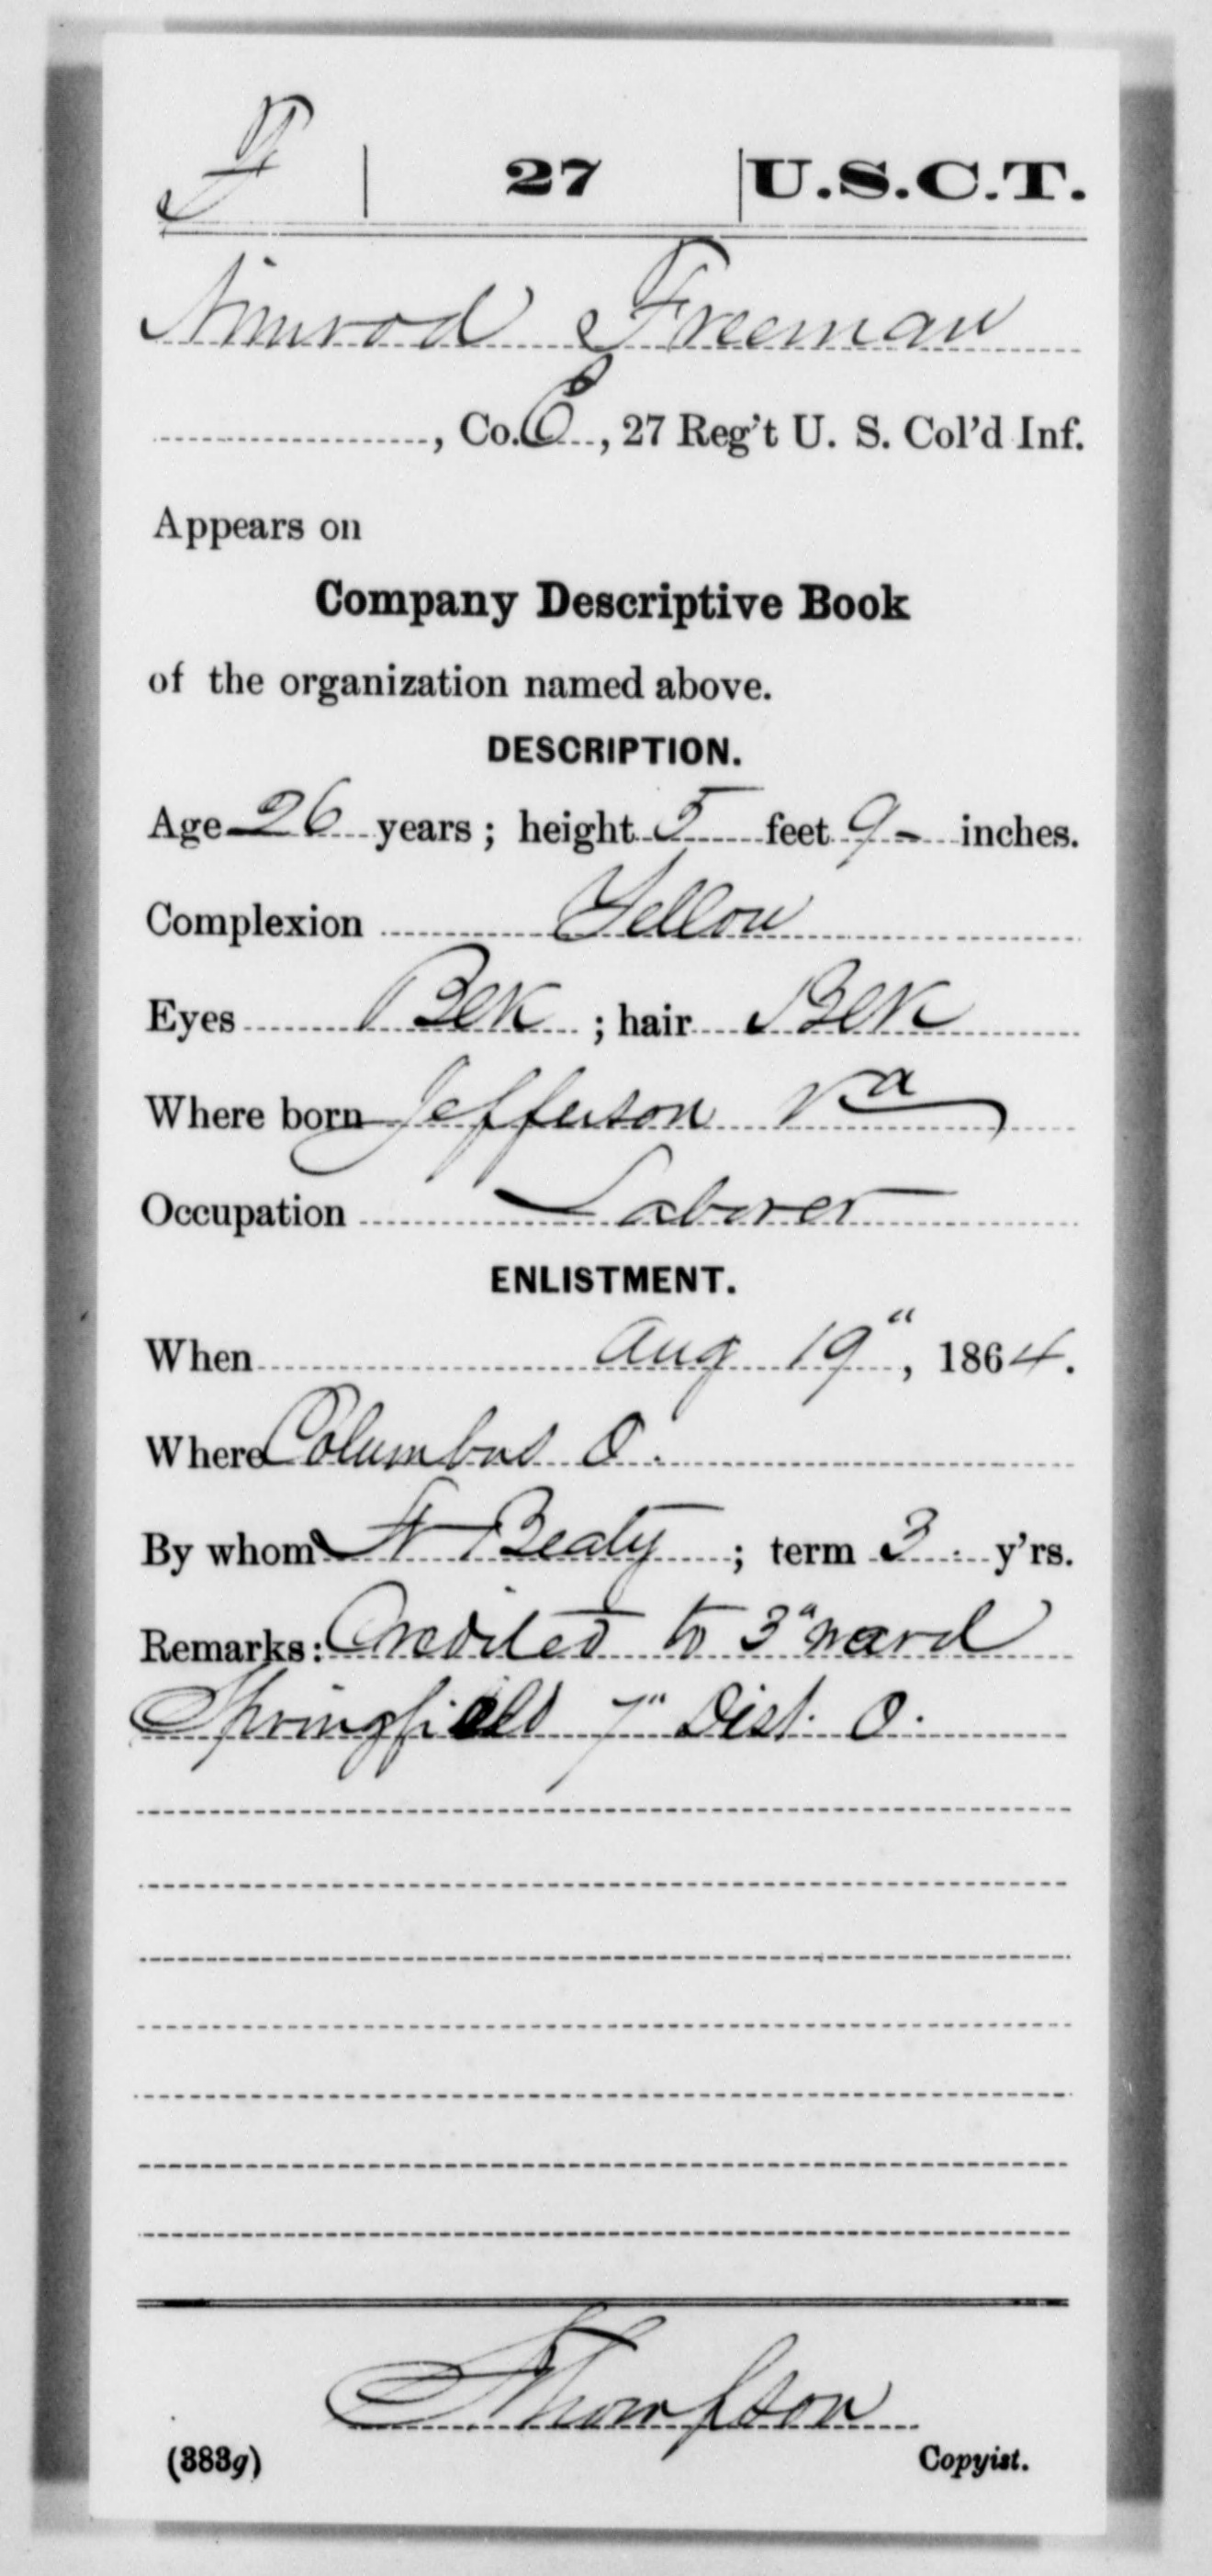 F | 27 | U.S.C.T.
Nimrod Freeman
, Co. E, 27 Reg't U. S. Col'd Inf.
Appears on
Company Descriptive Book
of the organization named above.
DESCRIPTION.
Age 26 years; height 5 feet 9 - inches.
Complexion Yellow
Eyes Blk; hair Blk
Where born Jefferson Va
Occupation Laborer
ENLISTMENT.
When Aug 19", 1864.
Where Columbus O.
By whom Beaty; term 3 y'rs.
Remarks: Credited to 3" ward
Springfield 7" Dist. O.
Thompson
(383g) Copyist.